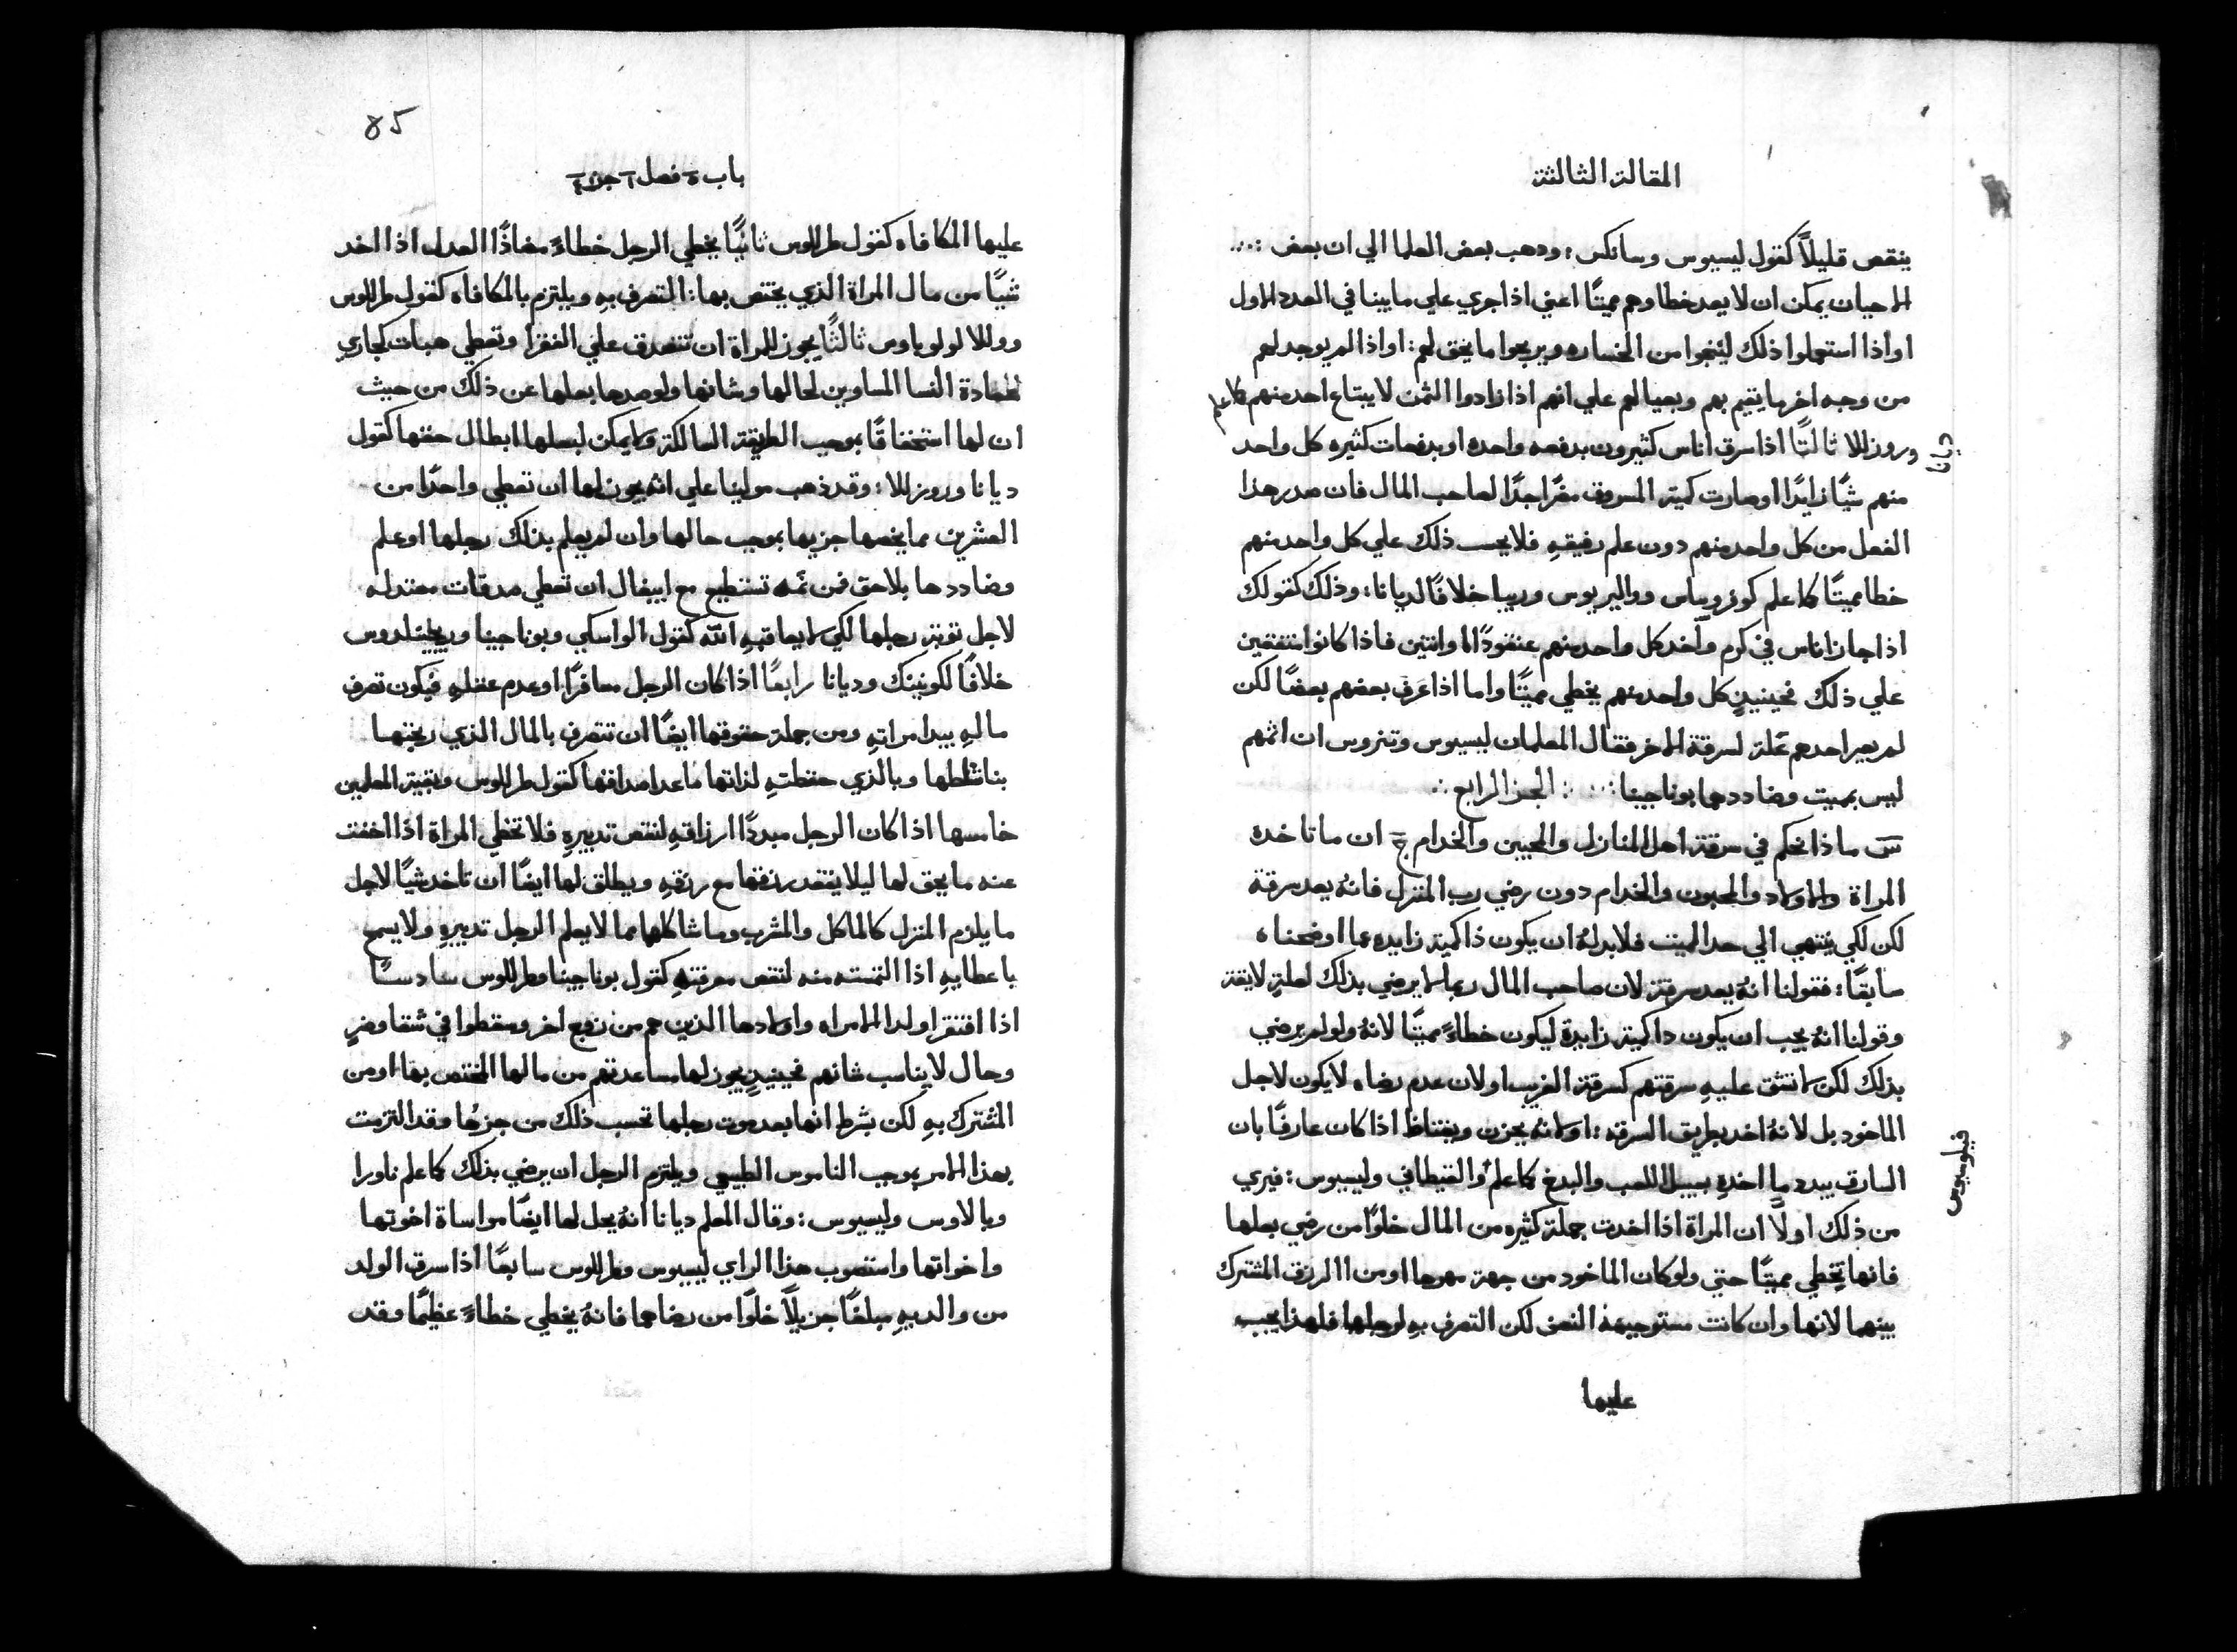 المقالة الثالثة
ينقص قليلاً كقول ليسيوس وسانكس : وذهب بعض العلما الي ان بعض :...
الاحيان يمكن ان لا يعد خطاوهم مميتًا اعني اذا جري علي ما بينا في العدد الاول
او اذا استعملوا ذلك لينجوا من الخساره ويربحوا ما يحق لهم : او اذا لم يوجد لهم
من وجه اخر ما يقيم بهم وبعيالهم علي انهم اذا زادوا الثمن لا يبتاع احد منهم كما علم
ديانا
وروزللا ثالثًا اذا سرق اناس كثيرون بدفعه واحده او بدفعات كثيره كل واحد
منهم شيًا زايدًا وصارت كمية المسروق مضرًا جدًا لصاحب المال فان صدر هذا
الفعل من كل واحد منهم دون علم رفيقهِ فلا يحسب ذلك علي كل واحد منهم
خطا مميتًا كما علم وواليريوس وريبا خلافًا لديانا : وذلك كقولك
اذا جاز اناس في كرم وآخد كل واحد منهم عنقودًا او اثنين فاذا كانوا متفقين
علي ذلك فحينيذٍ كل واحد منهم يخطي مميتًا واما اذا عرف بعضهم بعضًا لكن
لم يصر احدهم عّلة لسرقة الاخر فقال المعلمان ليسيوس وتنروس ان اثمهم
ليس بمميت وضاددهما بوناجينا :. . : الجز الرابع :
س ماذا نحكم في سرقة اهل المنازل والمحبين والخدام ج ان ما تاخده
المراة والاولاد والمحبون والخدام دون رضي رب المنزل فانهُ يعد سرقة
لكن لكي ينتهي الي حد المميت فلا بد لهُ ان يكون ذا كمية زايده عما اوضحناه
سابقًا : فقولنا انهُ يعد سرقة لان صاحب المال ربما لا يرضي بذلك لعلةٍ لايقة
وقولنا انهُ يجب ان يكون دا كمية زايدة ليكون خطاءً مميتًا لانهُ ولو لم يرضي
بذلك لكن لا تشق عليهِ سرقتهم كسرقة الغريب او لان عدم رضاه لا يكون لاجل
الماخود بل لانهُ اخد بطريق السرقه : او لانهُ يحزن ويغتاظ اذا كان عارفًا بان
السارق يبدد ما اخدهِ بسبيل اللعب والبدخ كما علم والقيطافي وليسيوس : فيري
فيلوسيوس
من ذلك اولًا ان المراة اذا اخدت جملة كثيره من المال خلوًا من رضي بعلها
فانها تخطي مميتًا حتي ولو كان الماخود من جهة مهرها او من الرزق المشترك
بينهما لانها وان كانت مستوجبة النصف لكن التصرف بهِ لرجلها فلهذا يجب
عليها
85
باب ٥ فصل ٦ جزء ٤
عليها المكافاه كقول طرللوس ثانيًا يخطي الرجل خطاءً مضادًا العدل اذا اخد
شيًا من مال المراة الذي يختص بها : التصرف بهِ ويلتزم بالمكافاه كقول طرللوس
وروللا لولوباوس ثالثًا يجوز للمراة ان تتصدق علي الفقرا وتعطي هبات كجاري
لعادة النسا المساوين لحالها وشانها ولو صدها بعلها عن ذلك من حيث
ان لها استحقاقًا بموجب الطريقة السالكة ولا يمكن لبعلها ابطال حقها كقول
ديانا وروزللا : وقد ذهب مولينا علي انهُ يجوز لها ان تعطي واحدًا من
العشرين مما يخصها جزيها بموجب حالها وان لم يعلم بذلك رجلها او علم
وضاددها بلا حق فمن ثمه تستطيع مع ابيفال ان تعطي صدقات معتدله
لاجل توبة رجلها لكي لا يعاقبهِ الله كقول الواسكي وبوناجينا
خلافًا لكونينك وديانا رابعًا اذا كان الرجل مسافرًا او عدم عقلهِ فيكون تصرف
مالهِ بيد امراتهِ ومن جملة حقوقها ايضًا ان تتصرف بالمال الذي ربحتها
بنشاطها وبالذي حفظتهِ لذاتها ما عدا صداقها كقول طرللوس وبقية المعلمين
خامسها اذا كان الرجل مبددًا ارزاقهِ لنقص تدبيرهِ فلا تخطي المراة اذا اخفت
عنه ما يحق لها ليلا ينفد رزقها مع رزقهِ ويطلق لها ايضًا ان تاخد شيًا لاجل
ما يلزم المنزل كالماكل والمشرب وما شاكلهما مما لا يعلم الرجل تدبيرهِ ولا يسمح
باعطايهِ اذا التمسته منه لنقص معرفتهِ كقول بوناجينا وطرللوس سادسًا
اذا افتقرا ولد الامراه واولادها الذين هم من زوج اخر وسقطوا في شقا وضرٍ
وحال لا يناسب شانهم فحينيذٍ يجوز لها مساعدتهم من مالها المختص بها او من
المشترك بهِ لكن بشرط انها بعد موت رجلها تحسب ذلك من جزءها وقد التزمت
بهذا الامر بموجب الناموس الطبيعي ويلتزم الرجل ان يرضي بذلك كما علم ناورا
وبالاوس وليسيوس : وقال المعلم ديانا انهُ يحل لها ايضًا مواساة اخوتها
واخواتها واستصوب هذا الراي ليسيوس وطرللوس سابعًا اذا سرق الولد
من والديهِ مبلغًا جزيلًا خلوًا من رضاهما فانهُ يخطي خطاءً عظيمًا وقد